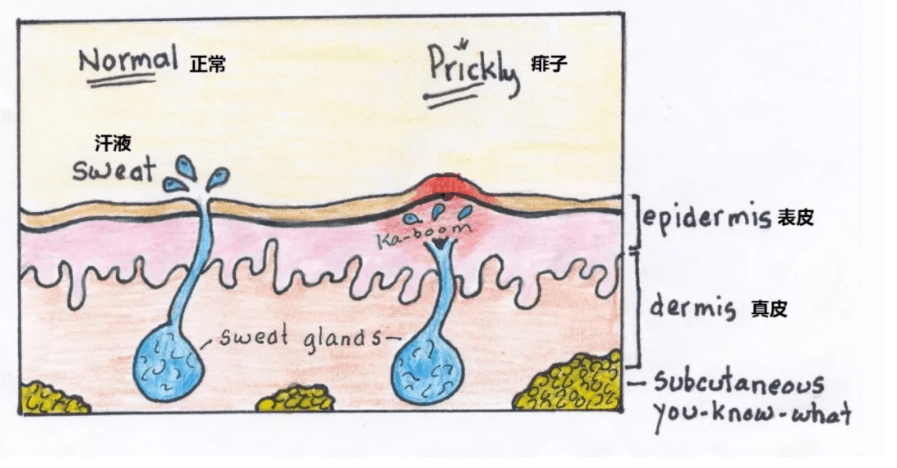 Normal 正常
Prickly 痱子
汗液
Sweat
Ka-boom
epidermis 表皮
dermis 真皮
sweat glands
subcutaneous
you-know-what